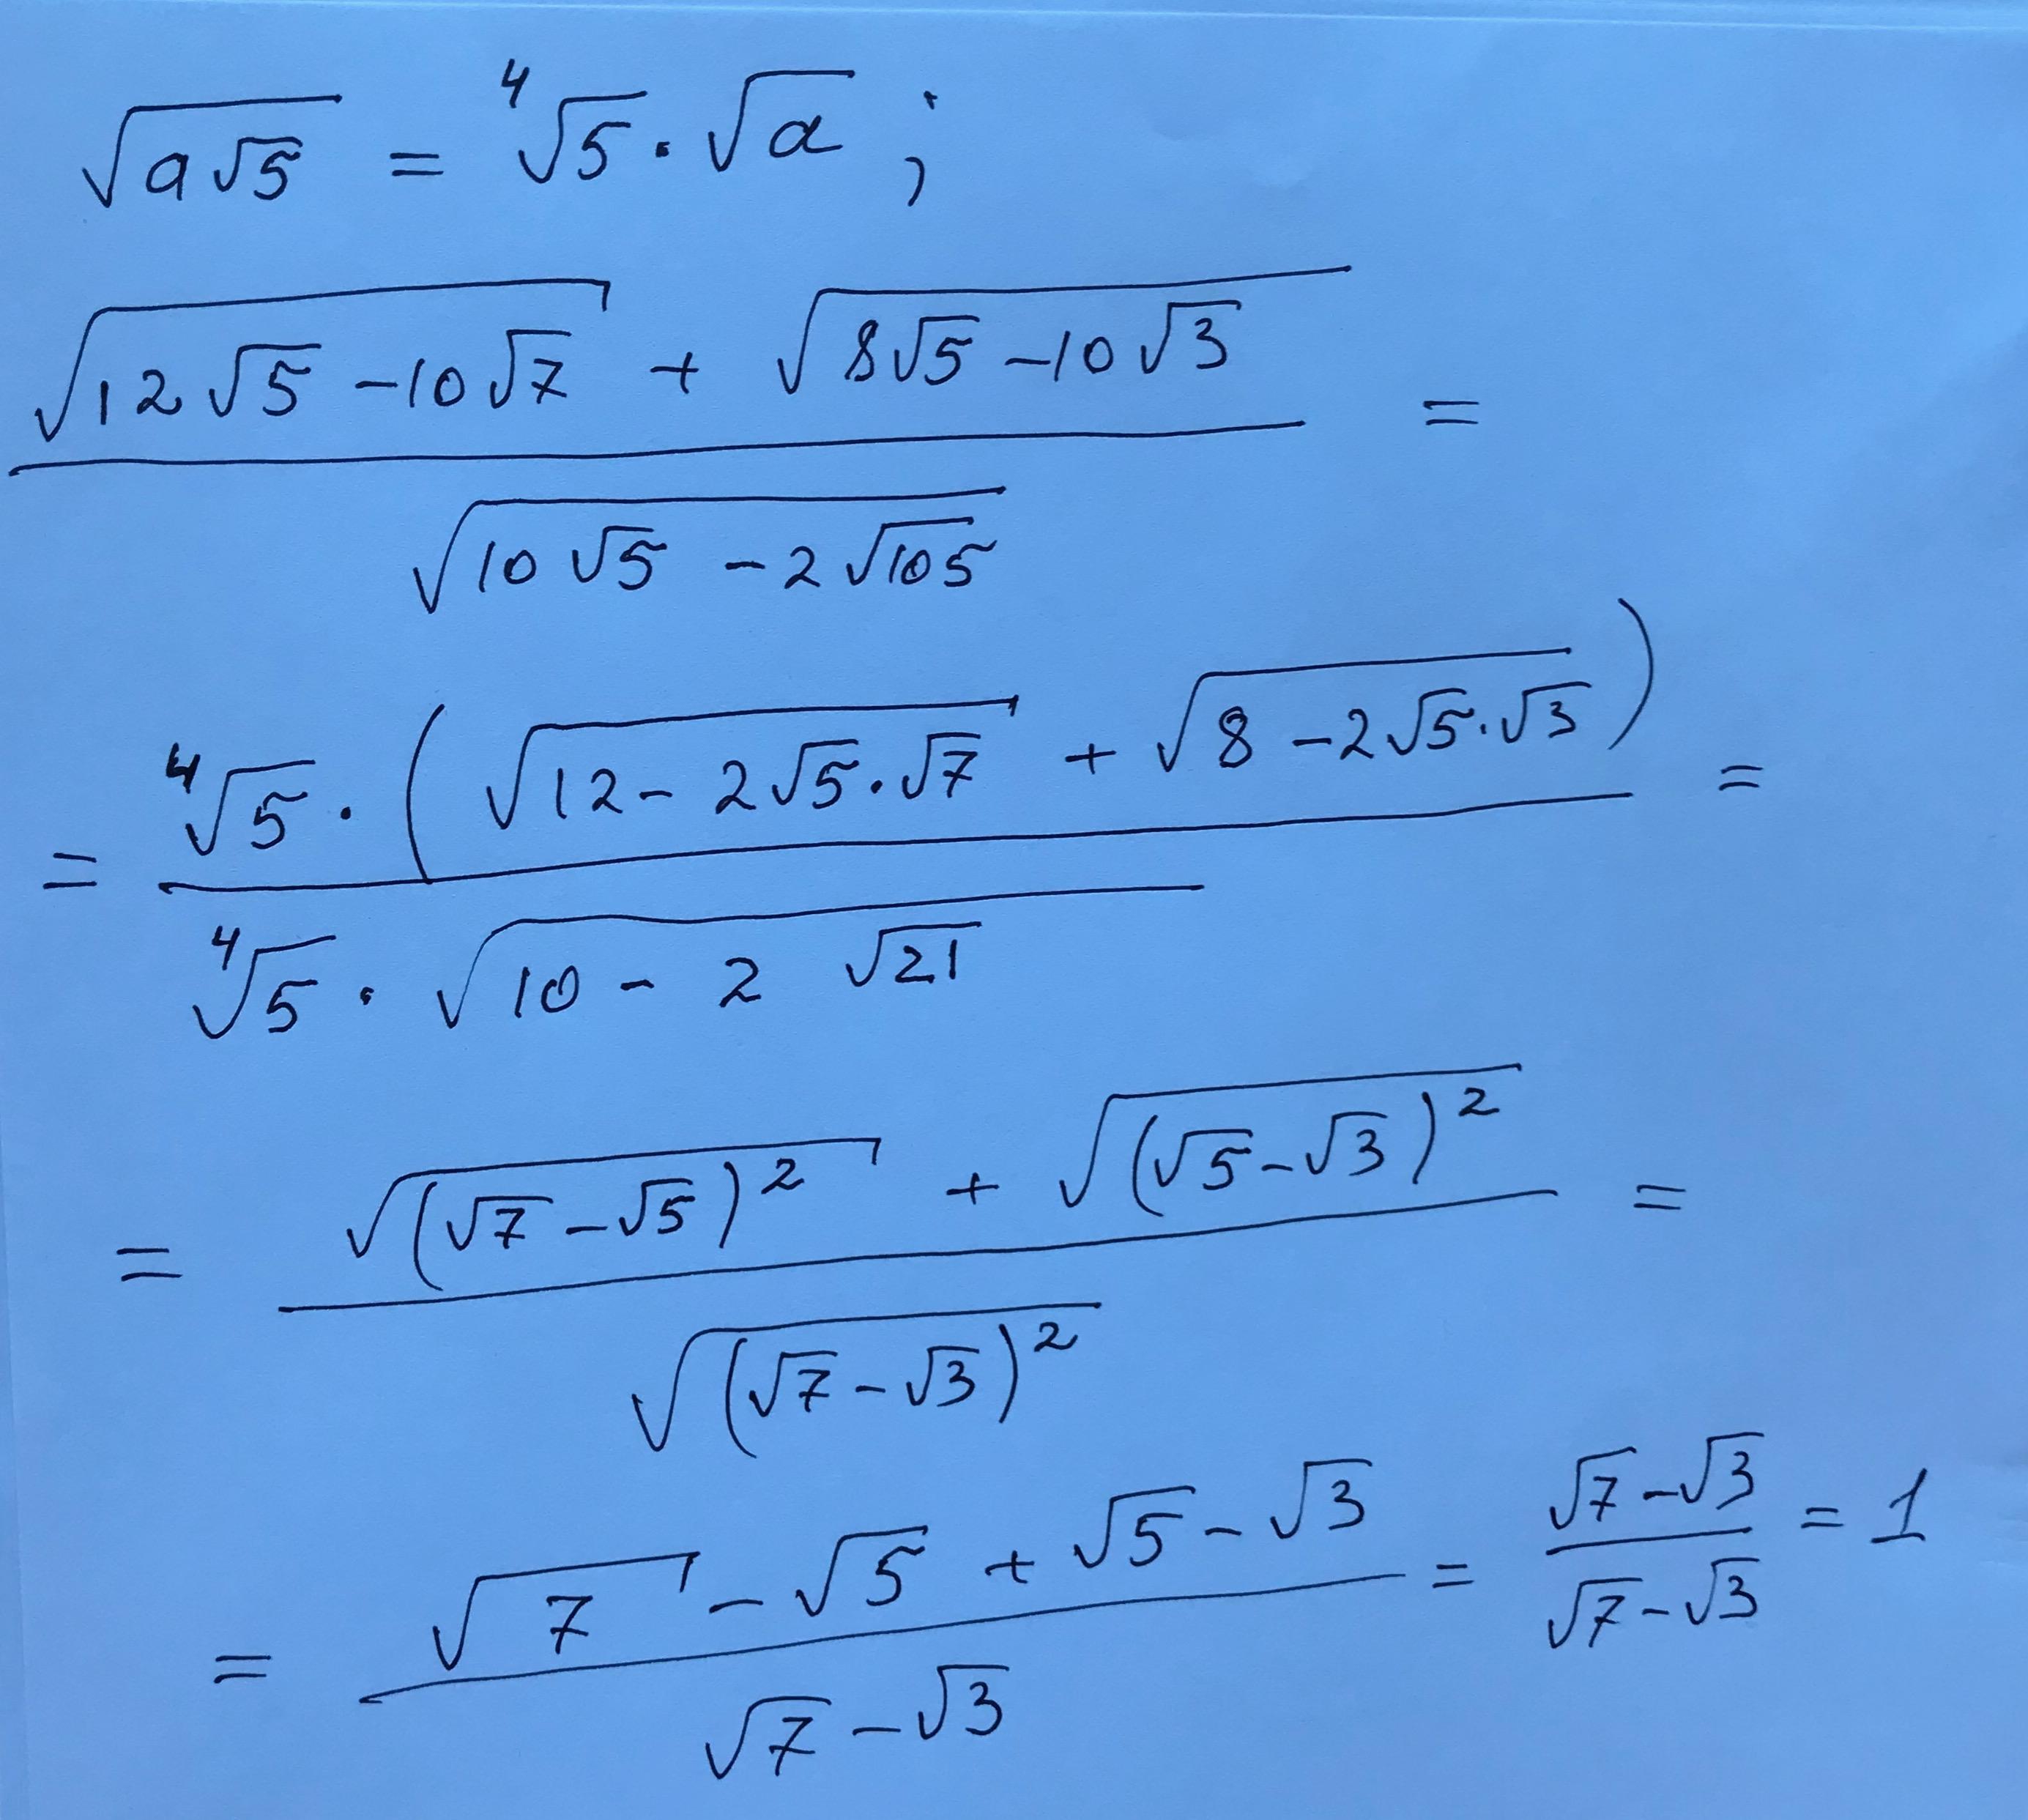 √(a√5) = ⁴√5 · √a ;
(√(12√5 − 10√7) + √(8√5 − 10√3)) / √(10√5 − 2√105) =
= (⁴√5 · (√(12 − 2√5·√7) + √(8 − 2√5·√3))) / (⁴√5 · √(10 − 2√21)) =
= (√((√7 − √5)²) + √((√5 − √3)²)) / √((√7 − √3)²) =
= (√7 − √5 + √5 − √3) / (√7 − √3) = (√7 − √3) / (√7 − √3) = 1